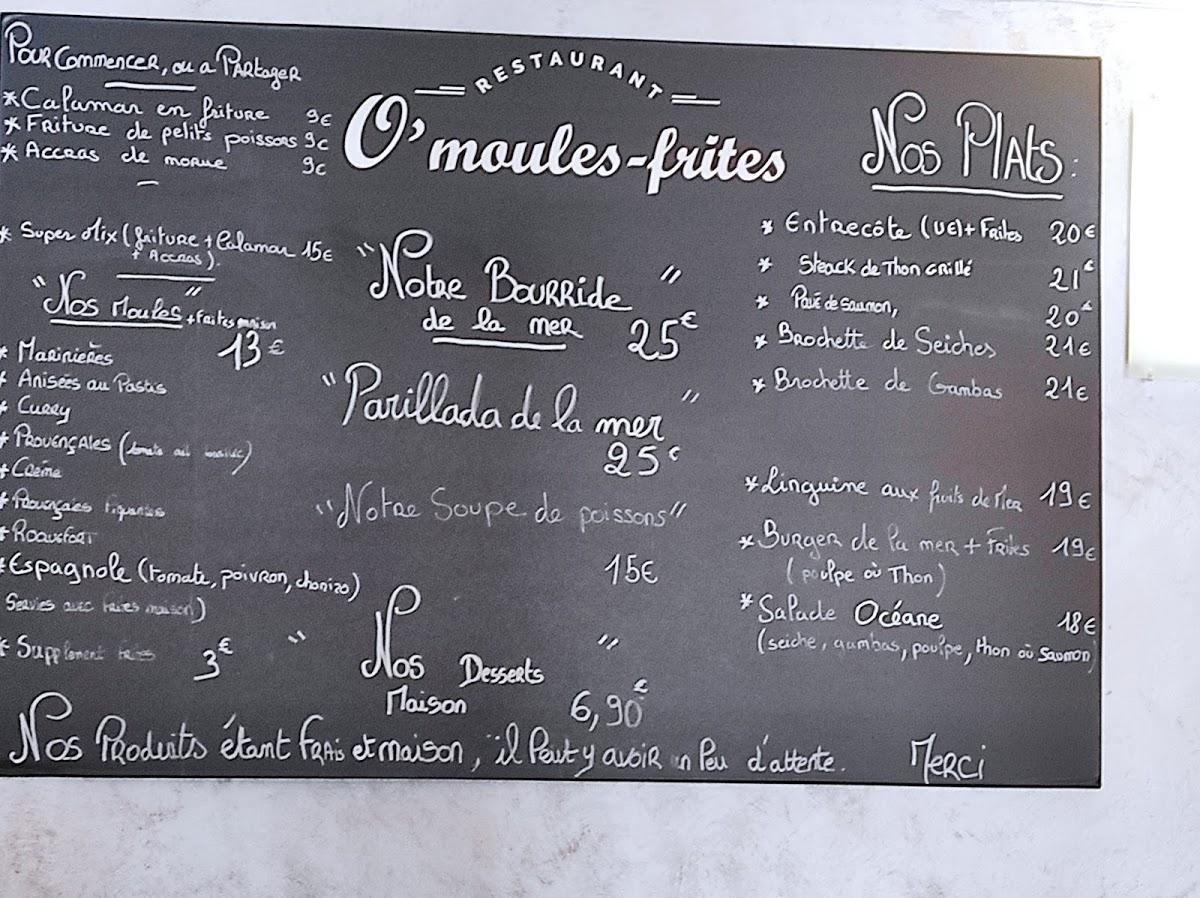 Pour Commencer, ou a Partager
* Calamar en friture 9€
* Friture de petits poissons 9€
* Accras de morue 9€
* Super Mix (friture + Calamar 15€
+ Accras).
"Nos Moules" + Frites maison
13€
* Marinières
* Anisées au Pastis
* Curry
* Provençales (tomate ail
* Crème
* Provençales Piquantes
* Roquefort
* Espagnole (tomate, poivron, chorizo)
Servies avec frites maison)
* Supplement frites 3€
RESTAURANT
O'moules-frites
"Notre Bourride"
de la mer 25€
"Parillada de la mer"
25€
"Notre Soupe de poissons"
15€
"Nos Desserts"
Maison 6,90€
Nos Plats :
* Entrecôte (UE) + Frites 20€
* Steack de Thon Grillé 21€
* Pavé de saumon, 20€
* Brochette de Seiches 21€
* Brochette de Gambas 21€
* Linguine aux fruits de Mer 19€
* Burger de la mer + Frites 19€
(poulpe où Thon)
* Salade Océane 18€
(seiche, gambas, poulpe, thon où saumon)
Nos Produits étant Frais et maison, il Peut y avoir un Peu d'attente. Merci